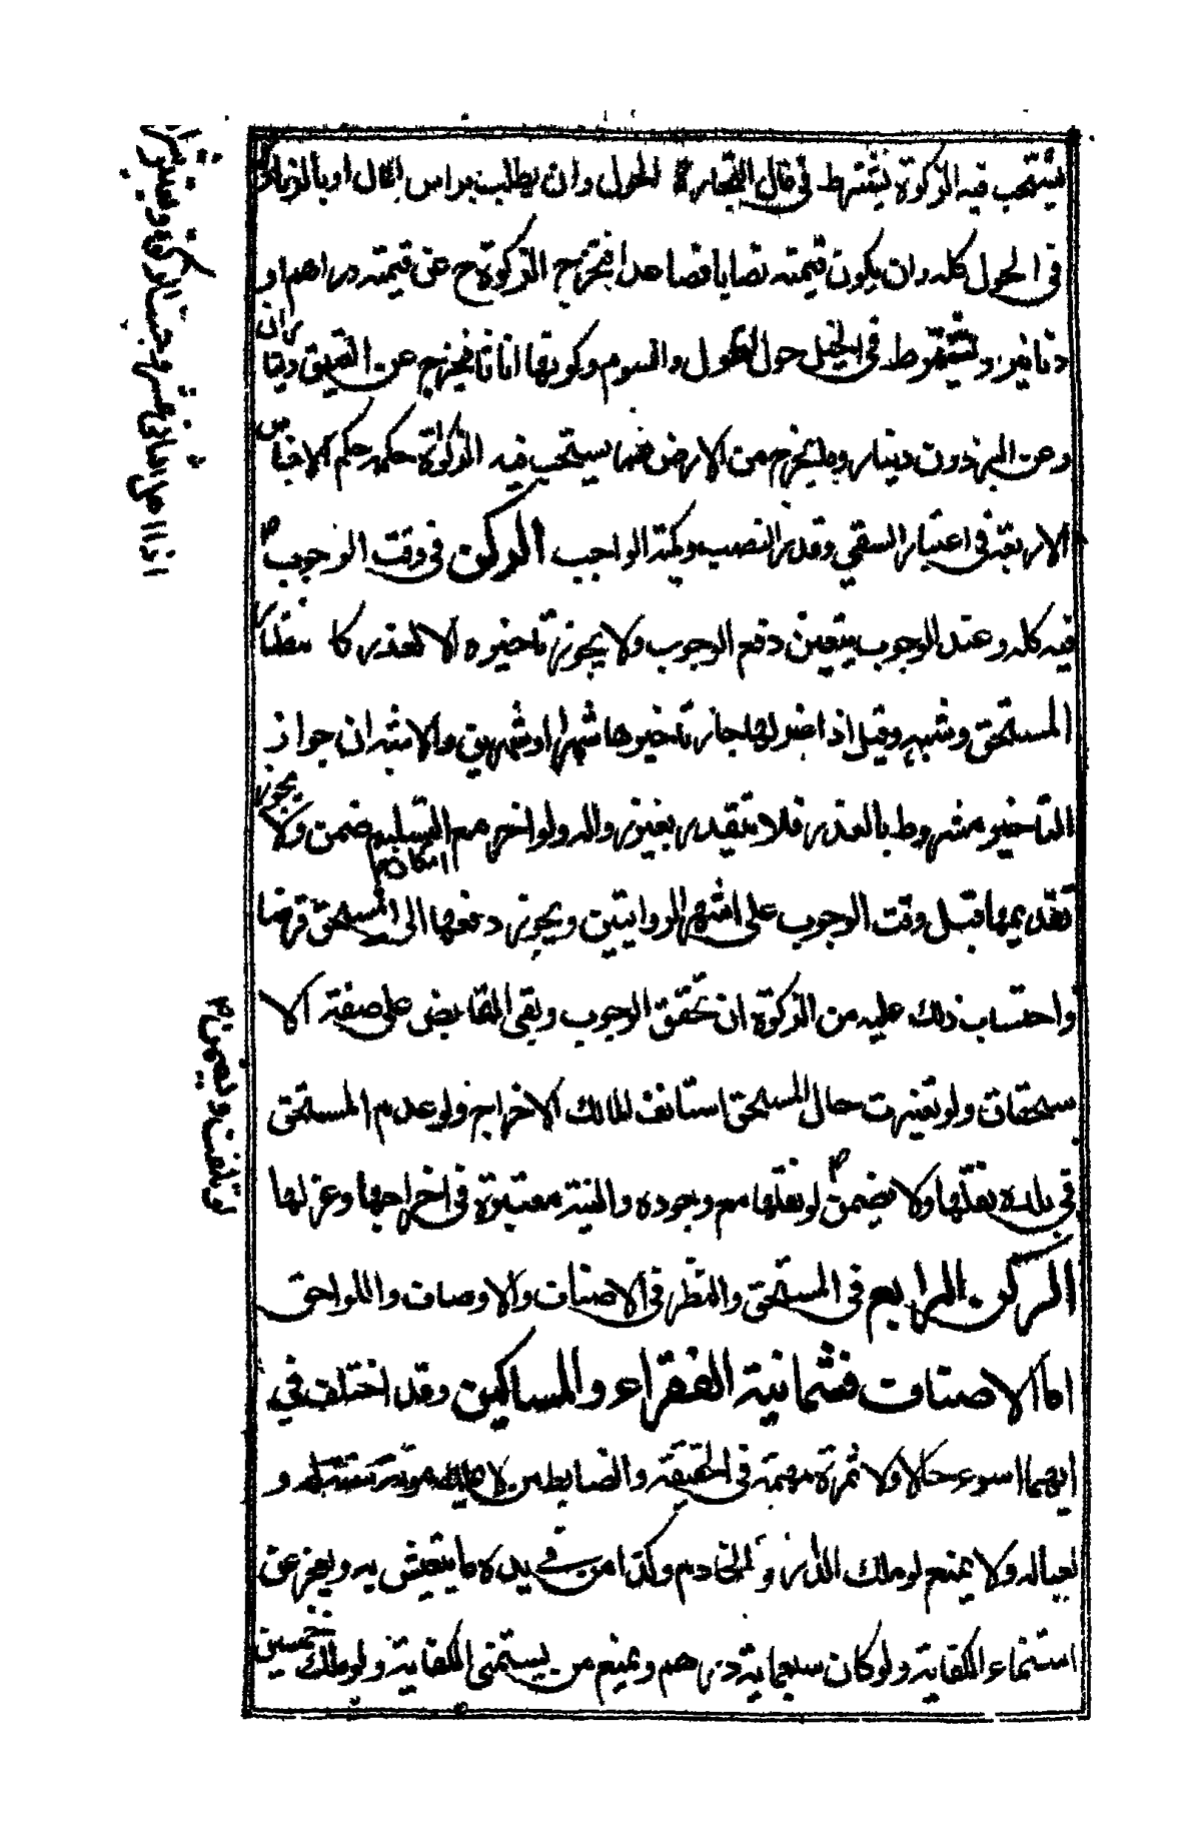 يستحب فيه الزكوة يشترط في مال التجارة الحول وان يطلب براس المال او بالزيادة
في الحول كله وان يكون قيمته نصابا فصاعدا فيخرج الزكوة ح عن قيمته دراهم او
دنانير ويشترط في الخيل حول الحول والسوم وكونها اناثا فيخرج عن العتيق ديناران
وعن البرذون دينار وما يخرج من الارض مما يستحب فيه الزكوة حكمه حكم الاجناس
الاربعة في اعتبار السقي وقدر النصب وكمية الواجب الركن في وقت الوجوب
فيه كله وعند الوجوب يتعين دفع الوجوب ولا يجوز تاخيره الا لعذر كانتظار
المستحق وشبهه وقيل اذا عزلها جاز تاخيرها شهرا او شهرين والاشبه ان جواز
التاخير مشروط بالعذر فلا يتقدر بغير زواله ولو اخر مع امكان التسليم ضمن ولا يجوز
تقديمها قبل وقت الوجوب على اشهر الروايتين ويجوز دفعها الى المستحق قرضا
واحتساب ذلك عليه من الزكوة ان تحقق الوجوب وبقى القابض على صفة الا
ستحقاق ولو تغيرت حال المستحق استانف المالك الاخراج ولو عدم المستحق
في بلده نقلها ولا يضمن لو نقلها مع وجوده والنية معتبرة في اخراجها وعزلها
الركن الرابع في المستحق والنظر في الاصناف والاوصاف واللواحق
اما الاصناف فثمانية الفقراء والمساكين وقد اختلف في
ايهما اسوء حالا ولا ثمرة مهمة في الحقيقة والضابط من لا يملك مؤنة سنة له و
لعياله ولا يمنع لو ملك الدار والخادم وكذا من في يده ما يتعيش به ويعجز عن
استنماء الكفاية ولو كان سبعماية درهم ويمنع من يستنمي الكفاية ولو ملك خمسين
لو تلفت ويضمن